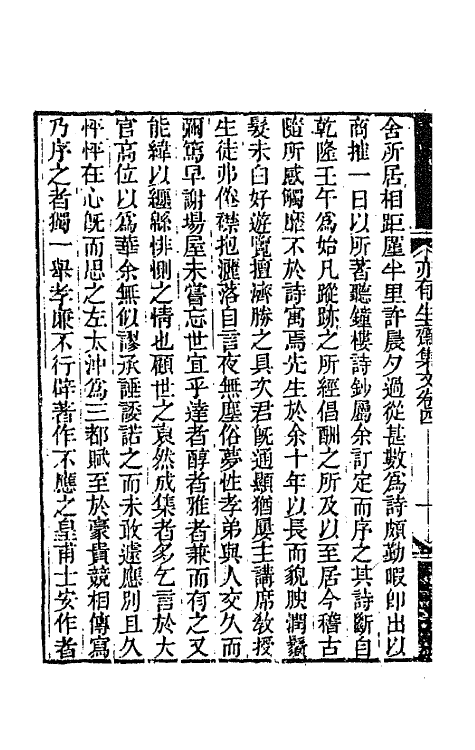 亦有生齋集文卷四
舍所居相距廑半里許晨夕過從甚數爲詩頗勤暇卽出以
商搉一日以所著聽鐘樓詩鈔屬余訂定而序之其詩斷自
乾隆壬午爲始凡蹤跡之所經倡酬之所及以至居今稽古
隨所感觸靡不於詩寓焉先生於余十年以長而貌腴潤鬚
髮未白好遊覽擅濟勝之具次君旣通顯猶屢主講席敎授
生徒弗倦襟抱灑落自言夜無塵俗夢性孝弟與人交久而
彌篤早謝場屋未嘗忘世宜乎達者醇者雅者兼而有之又
能緯以纒緜悱惻之情也顧世之裒然成集者多乞言於大
官高位以爲華余無似謬承諈諉諾之而未敢遽應別且久
怦怦在心旣而思之左太沖爲三都賦至於豪貴競相傳寫
乃序之者獨一舉孝廉不行辟著作不應之皇甫士安作者